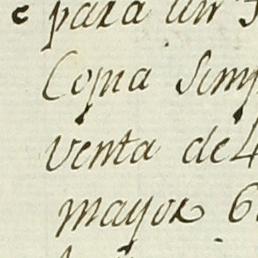 e para un
Copia Simp
venta de 4
mayor 6